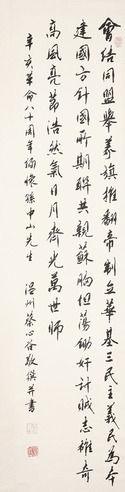 會結同盟舉義旗推翻帝制立華基三民主義民為本
建國方針國所期聯共親蘇胸坦蕩鋤奸討賊志雄奇
高風亮節浩然氣日月齊光萬世師
辛亥革命八十周年緬懷孫中山先生
溫州蔡心谷敬撰并書